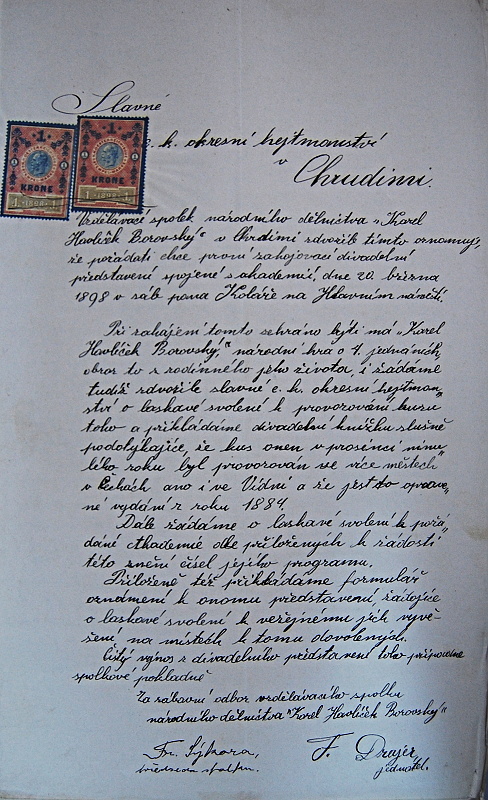 Slavné
c. k. okresní hejtmanství
v
Chrudimi.
1 KRONE 1 · 1898 · 1
1 KRONE 1 · 1898 · 1
Vzdělávací spolek národního dělnictva „Karel
Havlíček Borovský" v Chrdimi zdvořile tímto oznamuje,
že pořádati chce první zahajovací divadelní
představení spojené s akademií, dne 20. března
1898 v sále pana Koláře na Hlavním náměstí.
Při zahájení tomto sehráno býti má „Karel
Havlíček Borovský," národní hra o 4. jednáních,
obraz to z rodinného jeho života, i žádáme
tudíž zdvořile slavné c. k. okresní hejtman„
ství o laskavé svolení k provozování kusu
toho a přikládáme divadelní knížku slušně
podotýkajíce, že kus onen v prosinci minu„
lého roku byl provozován ve více městech
v Čechách, ano i ve Vídni a že jest to oprave„
né vydání z roku 1884.
Dále žádáme o laskavé svolení k pořá„
dání akademie dle přiložených k žádosti
této znění čísel jejího programu.
Přiloženě též přikládáme formulář
oznámení k onomu představení, žádajíce
o laskavé svolení k veřejnému jich vyvě„
šení, na místech k tomu dovolených.
Čistý výnos z divadelního představení toho připadne
spolkové pokladně.
Za zábavní odbor vzdělávacího spolku
národního dělnictva „Karel Havlíček Borovský"
Fr. Sýkora, F. Drajer,
předseda spolku. jednatel.